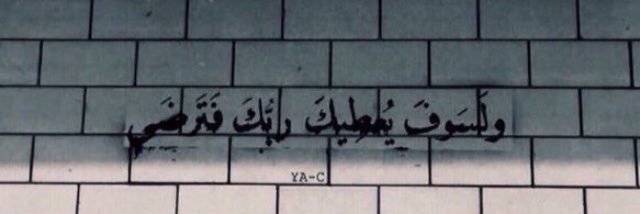 ولَسَوفَ يُعطِيكَ ربُّكَ فَتَرضَى
YA-C